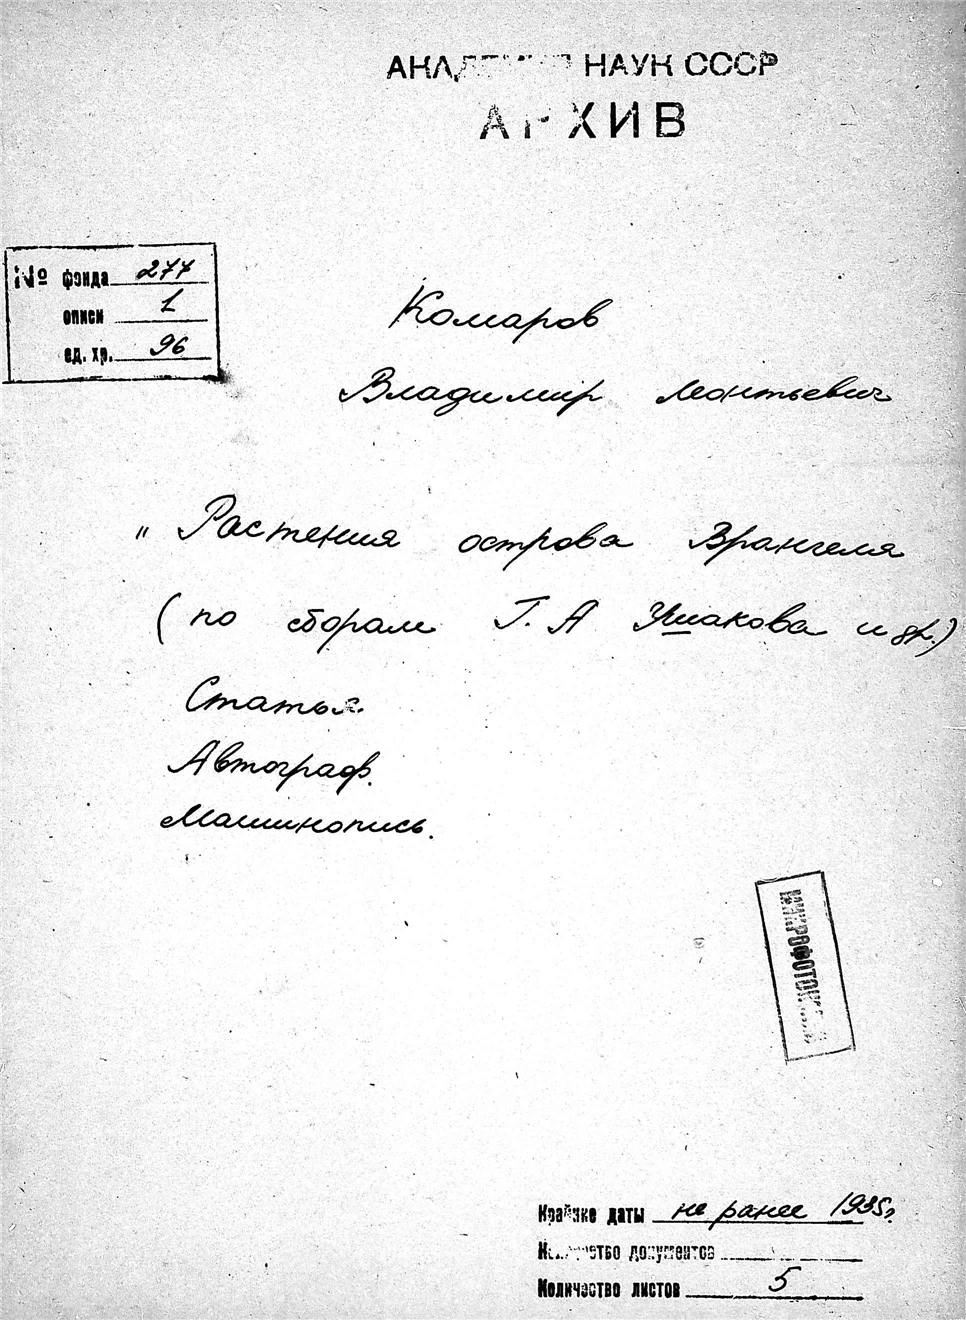 АКАДЕМИЯ НАУК СССР
АРХИВ
№ фонда 277
описи 1
ед. хр. 96
Комаров
Владимир Леонтьевич
" Растения острова Врангеля
(по сборам Г. А Ушакова и др.)
Статья.
Автограф.
Машинопись.
МИКРОФОТОКОПИЯ
Крайние даты не ранее 1935г.
Количество документов
Количество листов 5